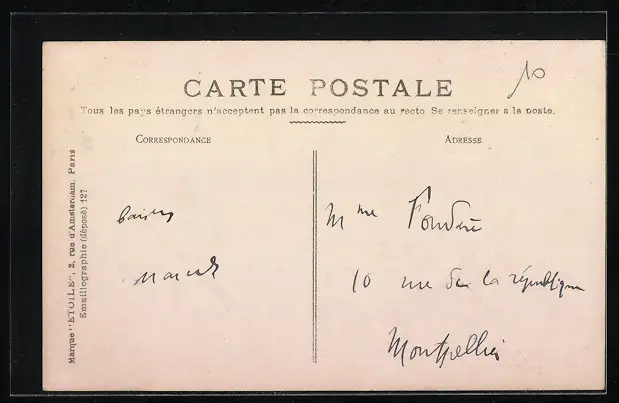 10
CARTE POSTALE
Tous les pays étrangers n'acceptent pas la correspondance au recto Se renseigner a la poste.
CORRESPONDANCE
ADRESSE
Marque "ETOILE", 2, rue d'Amsterdam. Paris
Emaillographie (déposé) 127
Baisers
Marcel
Mme
10 rue de la république
Montpellier